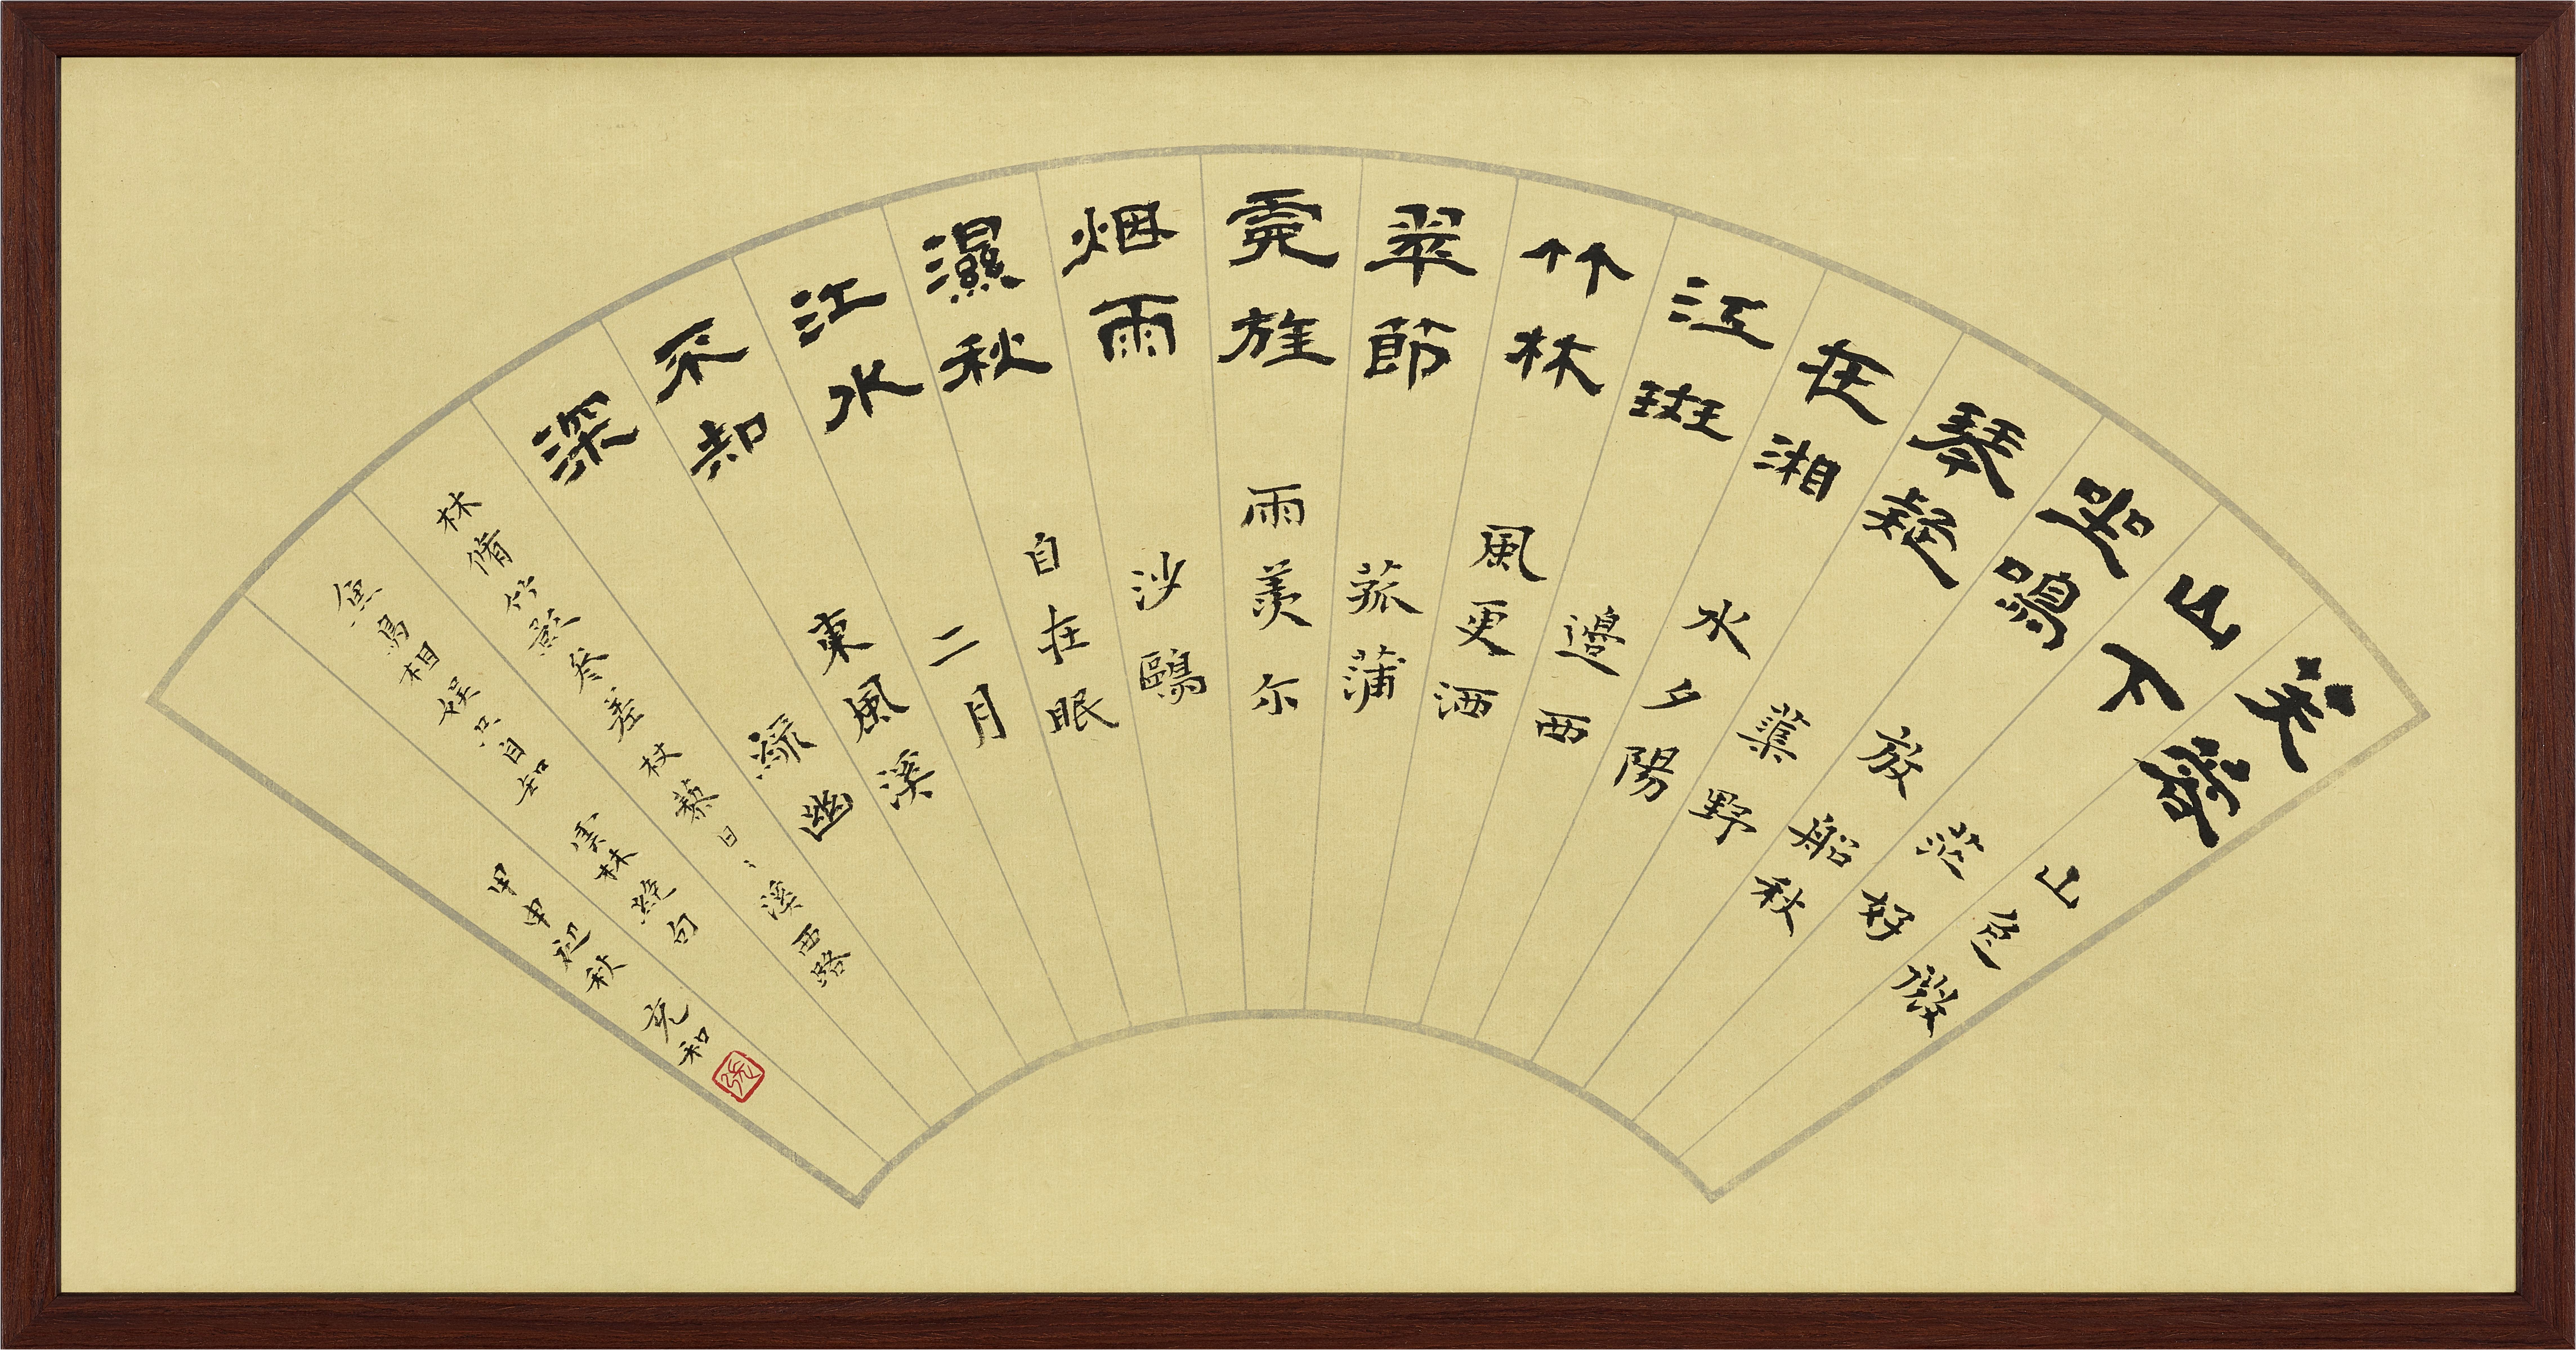 芙蓉
山下
坐鳴
琴疑
在湘
江斑
竹林
翠節
霓旌
烟雨
濕秋
江水
不知
深
山色微
茫好
放船
野秋
水夕陽
邊西
風更洒
菰蒲
雨羨尔
沙鷗
自在眠
二月
東風溪
綠幽
林脩竹影參差杖藜日〻溪西路
魚鳥相娛只自知 雲林絕句
甲申初秋 充和
張